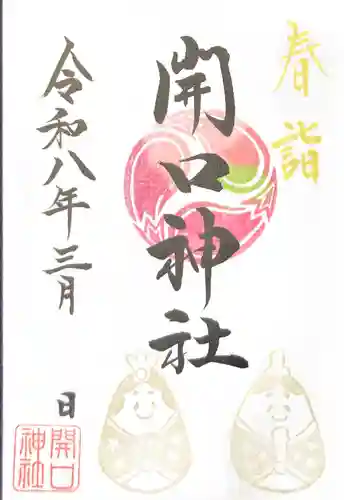 春詣
開口神社
令和八年三月 日
開口
神社